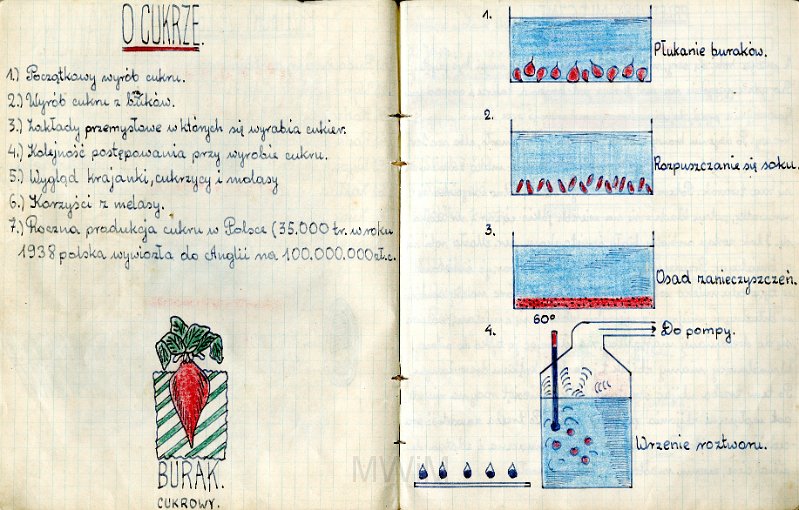 O CUKRZE.
1.) Początkowy wyrób cukru.
2.) Wyrób cukru z buków.
3.) Zakłady przemysłowe w których się wyrabia cukier.
4.) Kolejność postępowania przy wyrobie cukru.
5.) Wygląd krajanki, cukrzycy i molasy
6.) Korzyści z melasy.
7.) Roczna produkcja cukru w Polsce (35.000 tr. w roku
1938 polska wywiozła do Anglii na 100.000.000 zł.c.
BURAK.
CUKROWY.
1.
Płukanie buraków.
2.
Rozpuszczanie się soku.
3.
Osad zanieczyszczeń.
60°
4.
Do pompy.
Wrzenie roztworu.
MWiM